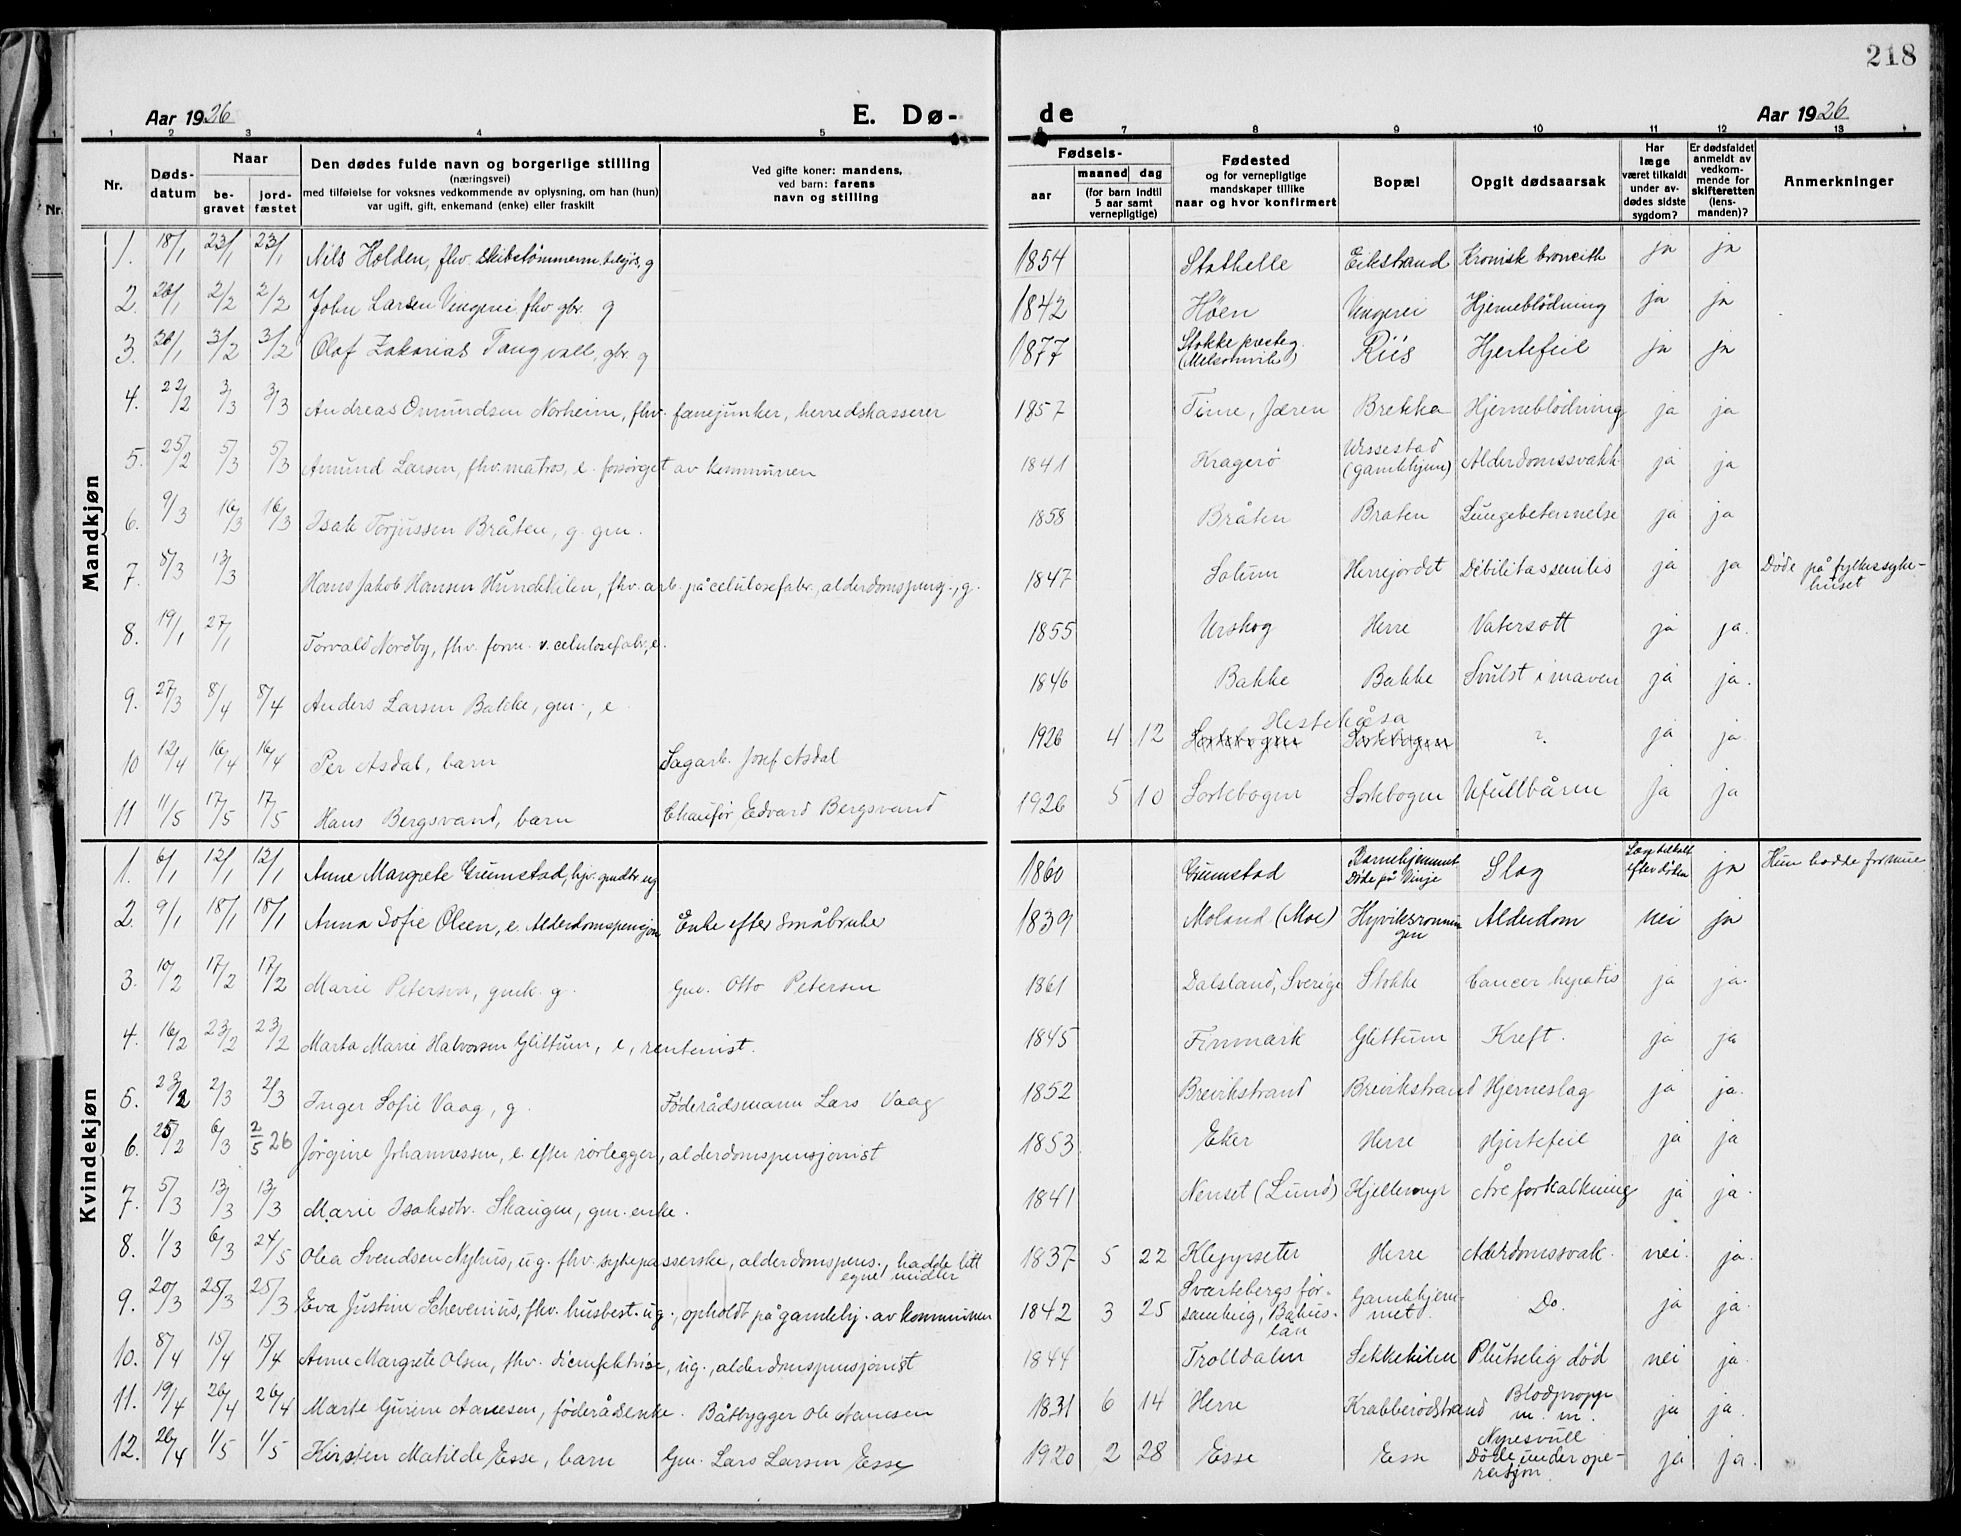 218
Aar 1926 E. Dø- de Aar 1926
1 2 3 4 5 6 7 8 9 10 11 12 13
Nr. Døds-datum Naar be-gravet jord-fæstet Den dødes fulde navn og borgerlige stilling (næringsvei) med tilføielse for voksnes vedkommende av oplysning, om han (hun) var ugift, gift, enkemand (enke) eller fraskilt Ved gifte koner: mandens, ved barn: farens navn og stilling Fødsels- aar maaned dag (for barn indtil 5 aar samt vernepligtige) Fødested og for vernepligtige mandskaper tillike naar og hvor konfirmert Bopæl Opgit dødsaarsak Har læge været tilkaldt under av-dødes sidste sygdom? Er dødsfaldet anmeldt av vedkom-mende for skifteretten (lens-manden)? Anmerkninger
Mandkjøn
1. 18/1 23/1 23/1 Nils Holden, fhv. Skibstømmerm. g 1854 Stathelle Eikstrand Kronisk broncith ja ja
2. 2/2 2/2 John Larsen Vingerei fhv gbr. g 1842 Høen Vingerei Hjerneblødning ja ja
3. 3/2 3/2 Olaf Zakarias Tangvall, gbr. g 1877 Stokke presteg. (Melsomvik) Riis Hjertefeil ja ja
4. 22/2 3/3 3/3 Andreas Omundsen Norheim, fhv. fanejunker, herredskasserer 1857 Time, Jæren Brekka Hjerneblødning ja ja
5. 25/2 5/3 5/3 Amund Larsen, fhv. matros, e. forsørget av kommunen 1841 Kragerø (gamlehjem) Alderdomssvakh. ja ja
6. 9/3 16/3 16/3 Isak Torjussen Bråten, g. gm. 1858 Bråten Braten Lungebetennelse ja ja
7. 8/3 13/3 Hans Jakob Hansen Hundekilen, fhv. arb. på celulosefabr., alderdomspensj., g. 1847 Solum Herrejordet Debilitas senilis ja ja Døde på fylkessyke-huset
8. 19/1 27/1 Torvald Nordby, fhv. form. v. celulosefabr., e. 1855 Urskog Herre Vatersott ja ja.
9. 27/3 8/4 8/4 Anders Larsen Bakke, gm., e. 1846 Bakke Bakke Svulst i maven ja ja.
10 12/4 16/4 16/4 Per Asdal, barn Sagarb. Josef Asdal 1926 4 12 Hestehåsa Sortebogen Sortebogen ? ja ja.
11 11/5 17/5 17/5 Hans Bergsvand, barn Chaufør Edvard Bergsvand 1926 5 10 Sortebogen Sortebogen Ufullbåren Ja ja
Kvindekjøn
1. 6/1 12/1 12/1 Anne Margrete Grumstad, hjv. gmdtr ug 1860 Grumstad Barnehjemmet Døde på Vinje Slag Læge tilkalt efter døden ja Hun hadde formue
2. 9/1 18/1 18/1 Anna Sofie Olsen, e. Alderdomspensjon Enke efter Småbruker 1839 Moland (Moe) Alderdom nei ja
3. 10/2 17/2 17/2 Marie Peterson, gmk. g. Gm. Otto Petersen 1861 Dalsland, Sverige Stokke Cancer hepatis ja ja.
4. 16/2 23/2 23/2 Marta Marie Halvorsen Glittum, e, rentenist. 1845 Finmark Glittum Kreft. ja ja
5. 23/2 2/3 2/3 Inger Sofie Vaag, g. Føderådsmann Lars Vaag 1852 Brevikstrand Brevikstrand Hjerneslag ja ja.
6. 25/2 6/3 2/5 26 Jørgine Johannessen, e. efter rørlegger, alderdomspensjonist 1853 Eker Herre Hjertefeil ja ja
7. 5/3 13/3 13/3 Marie Isaksdtr. Skaugen, gm. enke. 1841 Nenset (Lund) Kjellemyr Åreforkalkning ja ja.
8. 1/3 6/3 24/5 Olea Svendsen Nyhus, ug. fhv. sykepasserske, alderdomspens., hadde litt egne midler 1837 5 22 Kleppseter Herre Alderdomssvak. nei. ja.
9. 20/3 25/3 25/3 Eva Justine Schevenius, fhv. husbest. ug., opholdt på gamlehj. av kommunen 1842 3 25 Svartebergs for-samling, Bahus-län Gamlehjem-met. Do. ja ja.
10. 8/4 15/4 15/4 Anne Margrete Olsen, fhv. ug., alderdomspensjonist 1844 Trolldalen Sekkekilen Plutselig død nei ja.
11. 19/4 26/4 26/4 Marte Gurine Aanesen, føderådsenke. Båtbygger Ole Aanesen 1831 6 14 Herre Krabberødstrand Blodpropp m. m. ja ja.
12. 26/4 1/5 1/5 Kirsten Matilde Esse, barn Gm. Lars Larsen Esse 1920 2 28 Esse Esse Nyresvull Døde under ope-rasjon. ja ja.